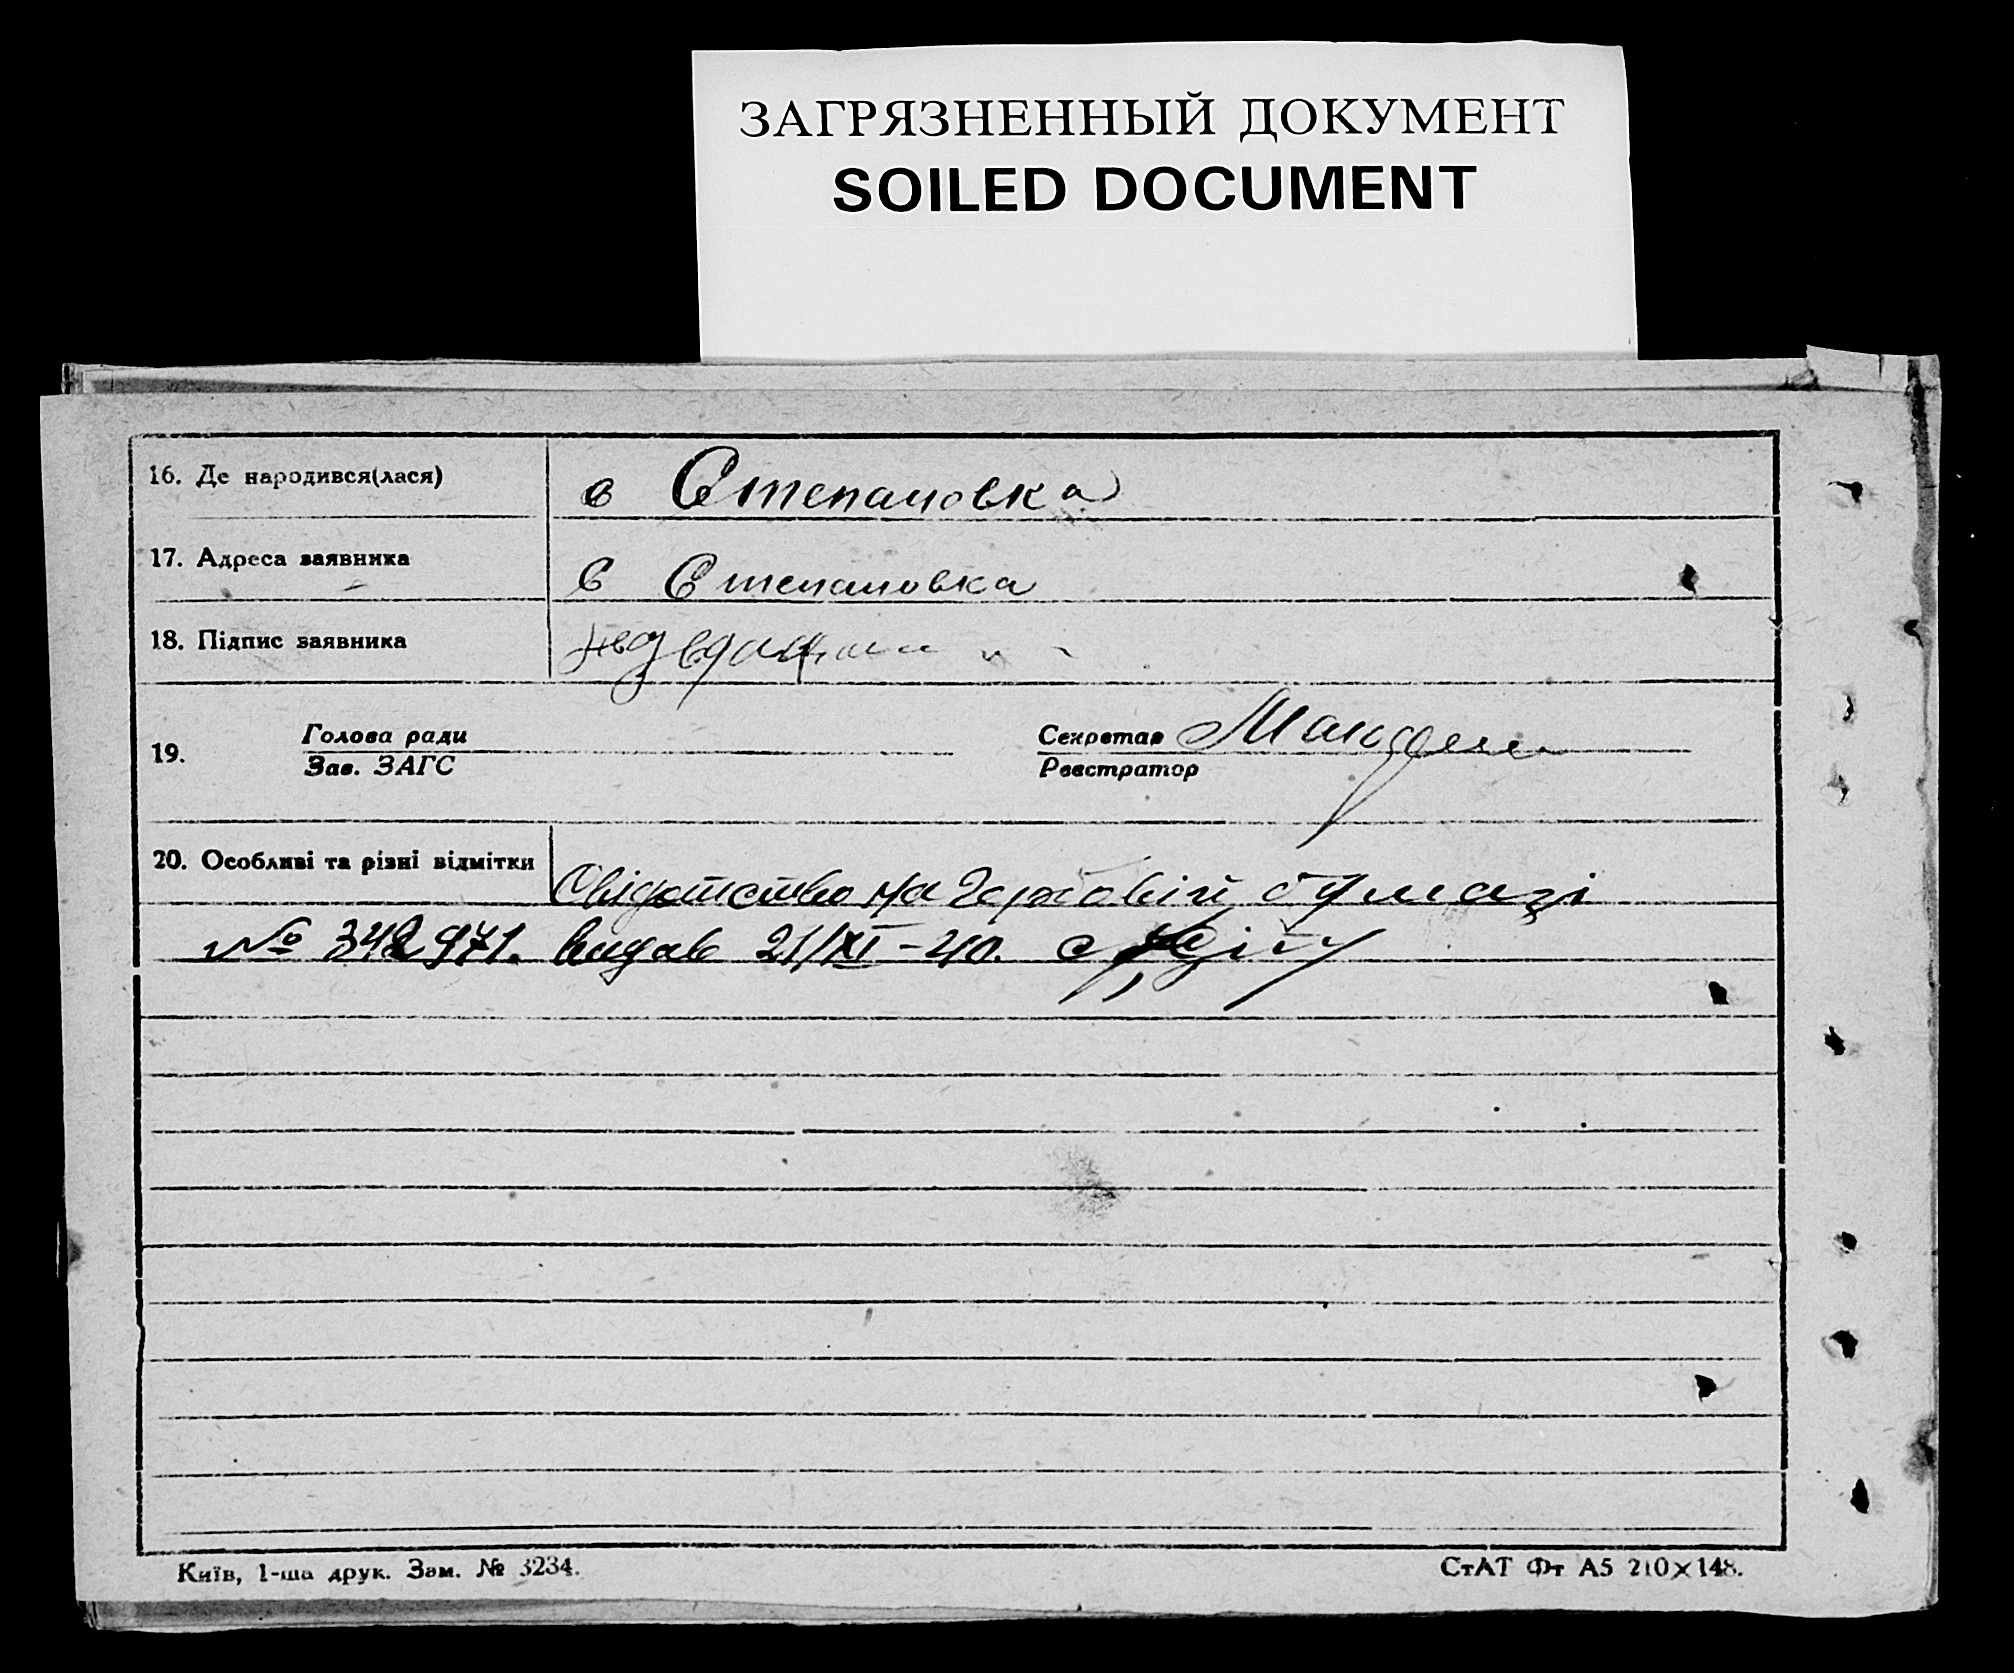 ЗАГРЯЗНЕННЫЙ ДОКУМЕНТ
SOILED DOCUMENT
16. Де народився(лася) с Степановка
17. Адреса заявника с Степановка
18. Підпис заявника
19. Голова ради Секретар
Зав. ЗАГС Реєстратор
20. Особливі та різні відмітки Свідотство на гербовій бумазі
№ 342971. видав 21/XI-40.
Київ, 1-ша друк. Зам. № 3234.
СтАТ Фт А5 210×148.